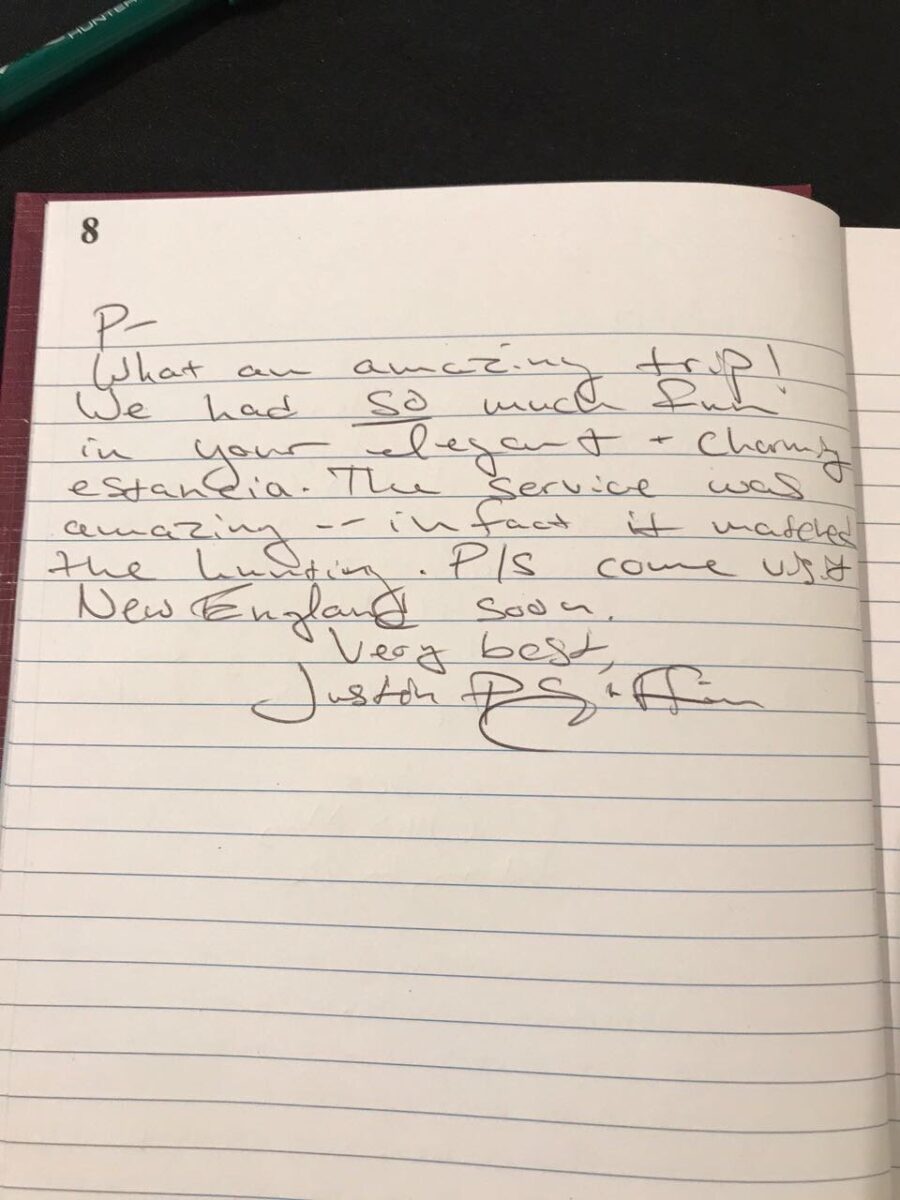 HUNTER
8
P-
What an amazing trip!
We had SO much fun
in your elegant + charming
estancia. The service was
amazing -- in fact it matched
the hunting. P/S come visit
New England soon.
Very best,
Justin